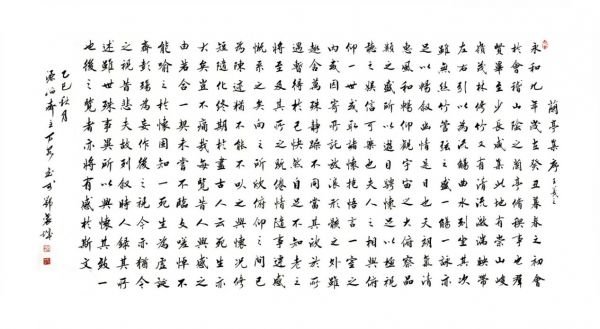 蘭亭集序 王羲之
永和九年歲在癸丑暮春之初會
於會稽山陰之蘭亭脩禊事也羣
賢畢至少長咸集此地有崇山峻
嶺茂林修竹又有清流激湍映帶
左右引以為流觴曲水列坐其次
雖無絲竹管弦之盛一觴一詠亦
足以暢敘幽情是日也天朗氣清
惠風和暢仰觀宇宙之大俯察品
類之盛所以遊目騁懷足以極視
聽之娛信可樂也夫人之相與俯
仰一世或取諸懷抱悟言一室之
內或因寄所託放浪形骸之外雖
趣舍萬殊靜躁不同當其欣於所
遇暫得於己快然自足不知老之
將至及其所之既倦情隨事遷感
慨系之矣向之所欣俯仰之間已
為陳迹猶不能不以之興懷況修
短隨化終期於盡古人云死生亦
大矣豈不痛哉每覽昔人興感之
由若合一契未嘗不臨文嗟悼不
能喻之於懷固知一死生為虛誕
齊彭殤為妄作後之視今亦猶今
之視昔悲夫故列敘時人錄其所
述雖世殊事異所以興懷其致一
也後之覽者亦將有感於斯文
乙巳秋月
齋主